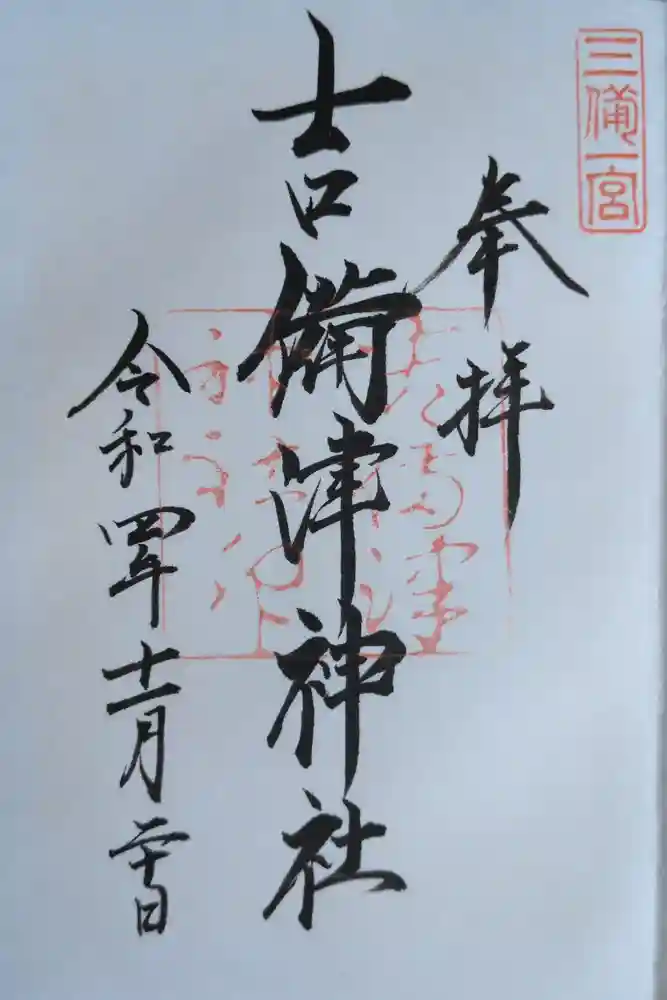 三備一宮
奉拝
吉備津神社
令和四年十一月二十日